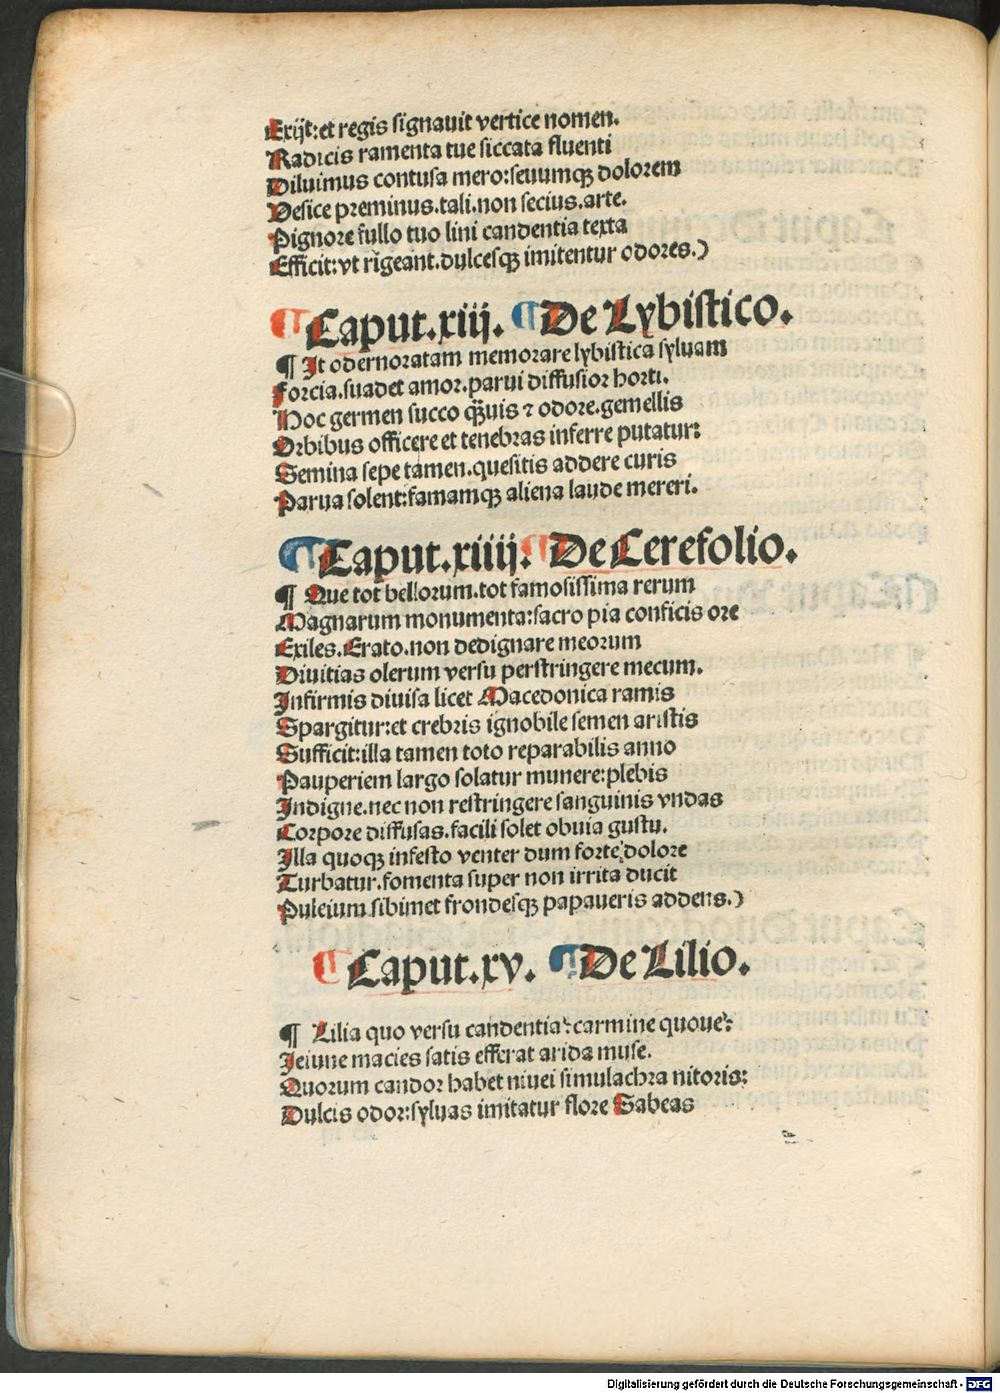 Exijt:et regis signauit vertice nomen.
Radicis ramenta tue siccata fluenti
Diluimus contusa mero:seuumqꝫ dolorem
Vesice preminus.tali.non secius.arte.
Pignore fullo tuo lini candentia texta
Efficit:vt rigeant.dulcesqꝫ imitentur odores.)
¶ Caput.xiij. ¶ De Lybistico.
¶ It odernoratam memorare lybistica syluam
Forcia.suadet amor.parui diffusior horti.
Hoc germen succo qͣuis ⁊ odore.gemellis
Orbibus officere et tenebras inferre putatur:
Semina sepe tamen.quesitis addere curis
Parua solent:famamqꝫ aliena laude mereri.
¶ Caput.xiiij. ¶ De Cerefolio.
¶ Que tot bellorum.tot famosissima rerum
Magnarum monumenta:sacro pia conficis ore
Exiles.Erato.non dedignare meorum
Diuitias olerum versu perstringere mecum.
Infirmis diuisa licet Macedonica ramis
Spargitur:et crebris ignobile semen aristis
Sufficit:illa tamen toto reparabilis anno
Pauperiem largo solatur munere:plebis
Indigne.nec non restringere sanguinis vndas
Corpore diffusas.facili solet obuia gustu.
Illa quoqꝫ infesto venter dum forte dolore
Turbatur.fomenta super non irrita ducit
Puleium sibimet frondesqꝫ papaueris addens.)
¶ Caput.xv. ¶ De Lilio.
¶ Lilia quo versu candentia:carmine quoue:
Ieiune macies satis efferat arida muse.
Quorum candor habet niuei simulachra nitoris:
Dulcis odor:syluas imitatur flore Sabeas
Digitalisierung gefördert durch die Deutsche Forschungsgemeinschaft - DFG